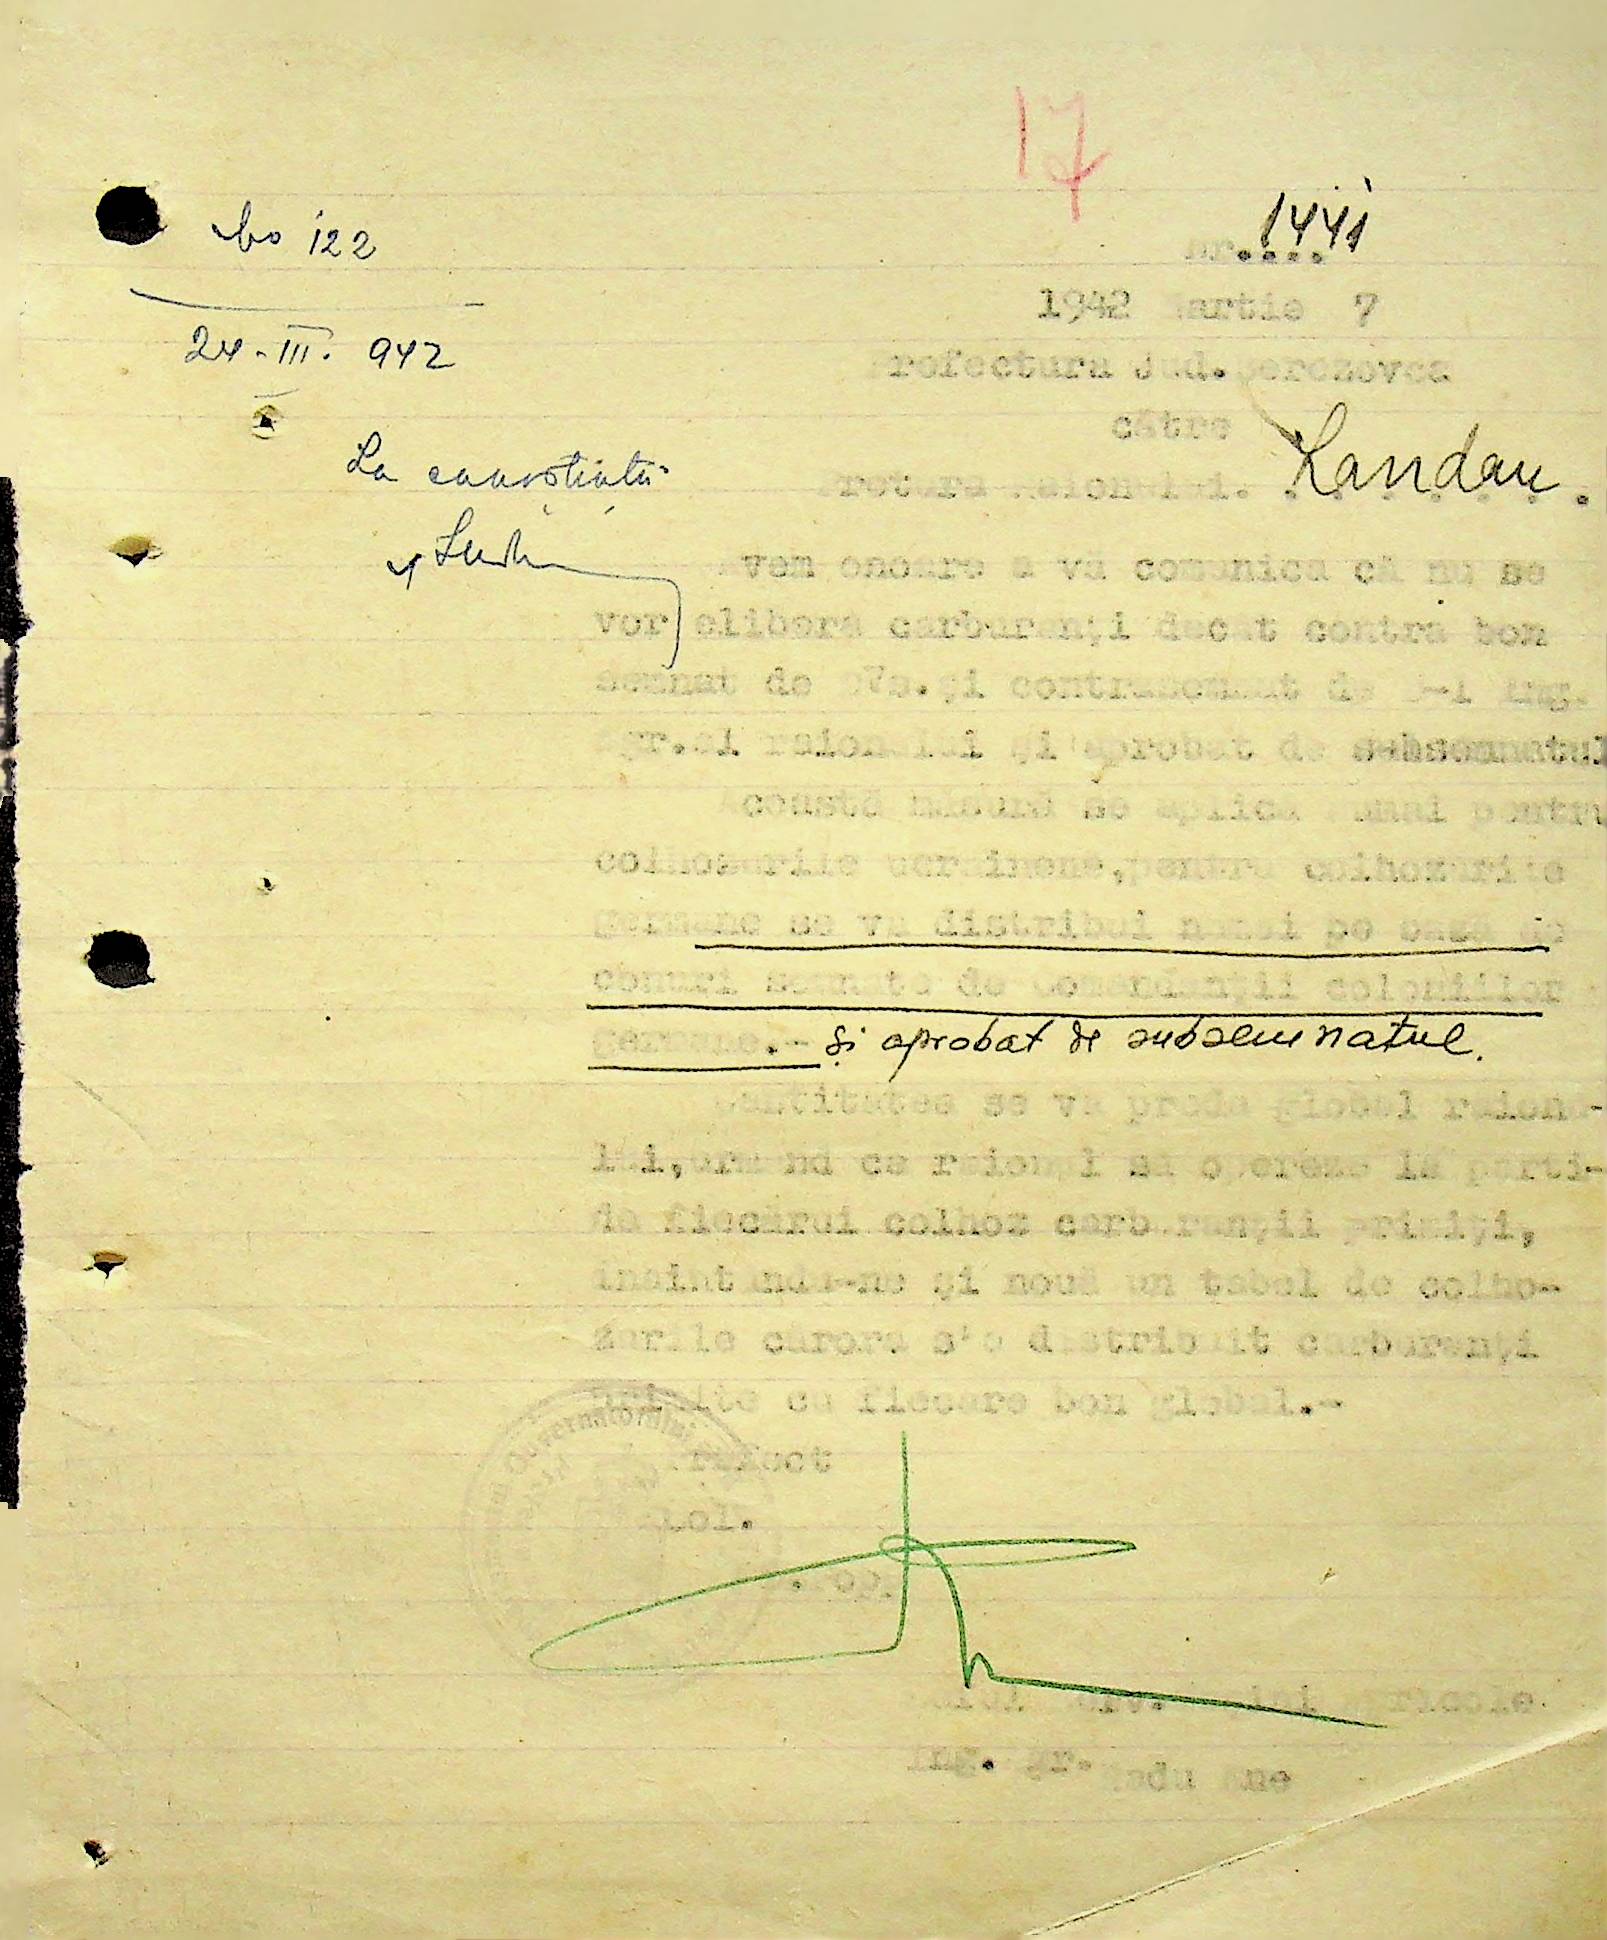 17
No 122
24-III. 942
La cunostinta
nr....1441
1942 Martie 7
Prefectura jud.Berezovca
către
Pretura Raionului. Landau
Avem onoare a vă comunica că nu se
vor elibera carburanți decat contra bon
semnat de Dvs.și contrasemnat de D-l ing.
agr.al raionului și aprobat de subsemnatul
Această măsură se aplica numai pentru
colhozurile ucrainene,pentru colhozurile
germane se va distribui numai pe bază de
bonuri semnate de comandanții coloniilor
germane.- și aprobat de subsemnatul.
Cantitatea se va preda global raionu-
lui,urmand ca raionul să opereze la parti-
da fiecărui colhoz carburanții primiți,
inaintandu-ne și nouă un tabel de colho-
zurile cărora s'a distribuit carburanți
primite cu fiecare bon global.-
Prefect
Col.
Guvernatorului
Serv. agricole
ing. agr. Radu